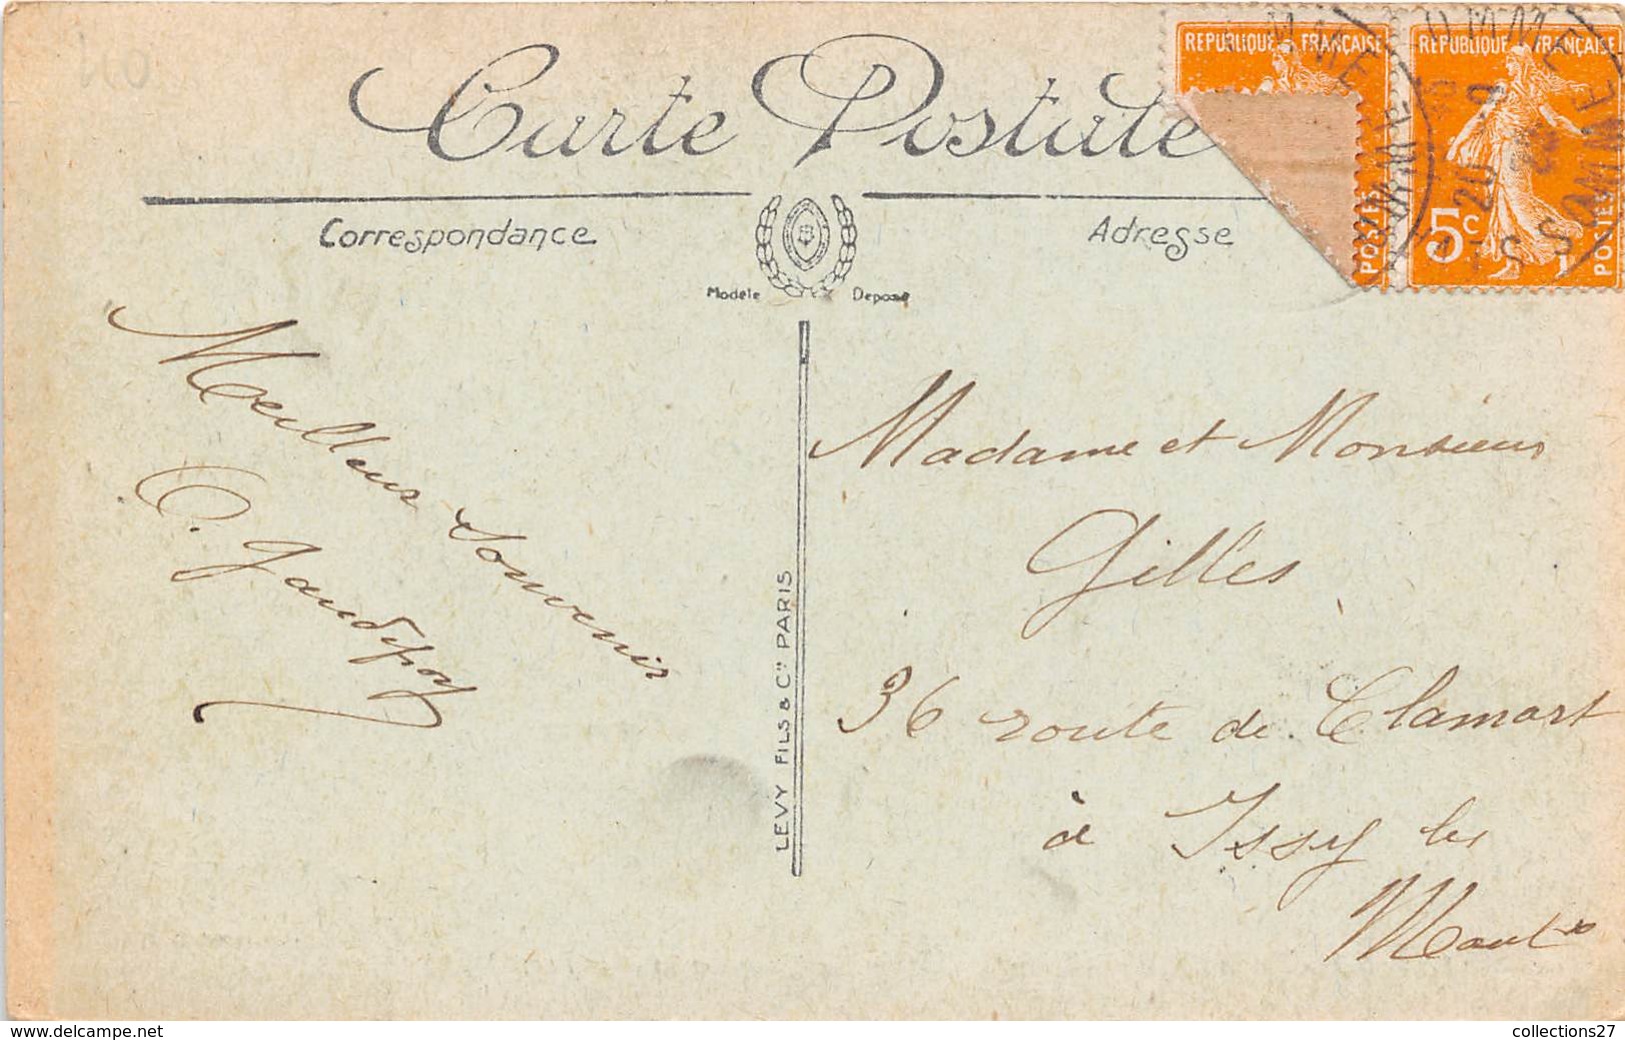 Carte Postale
Correspondance
Adresse
Modèle Déposé
REPUBLIQUE FRANÇAISE
POSTES
REPUBLIQUE FRANÇAISE
5c
POSTES
20
SOMME
Meilleur Souvenir
C.
LEVY FILS & Cie PARIS
Madame et Monsieur
Gilles
36 route de Clamart
à Issy les
Moulx
collections27